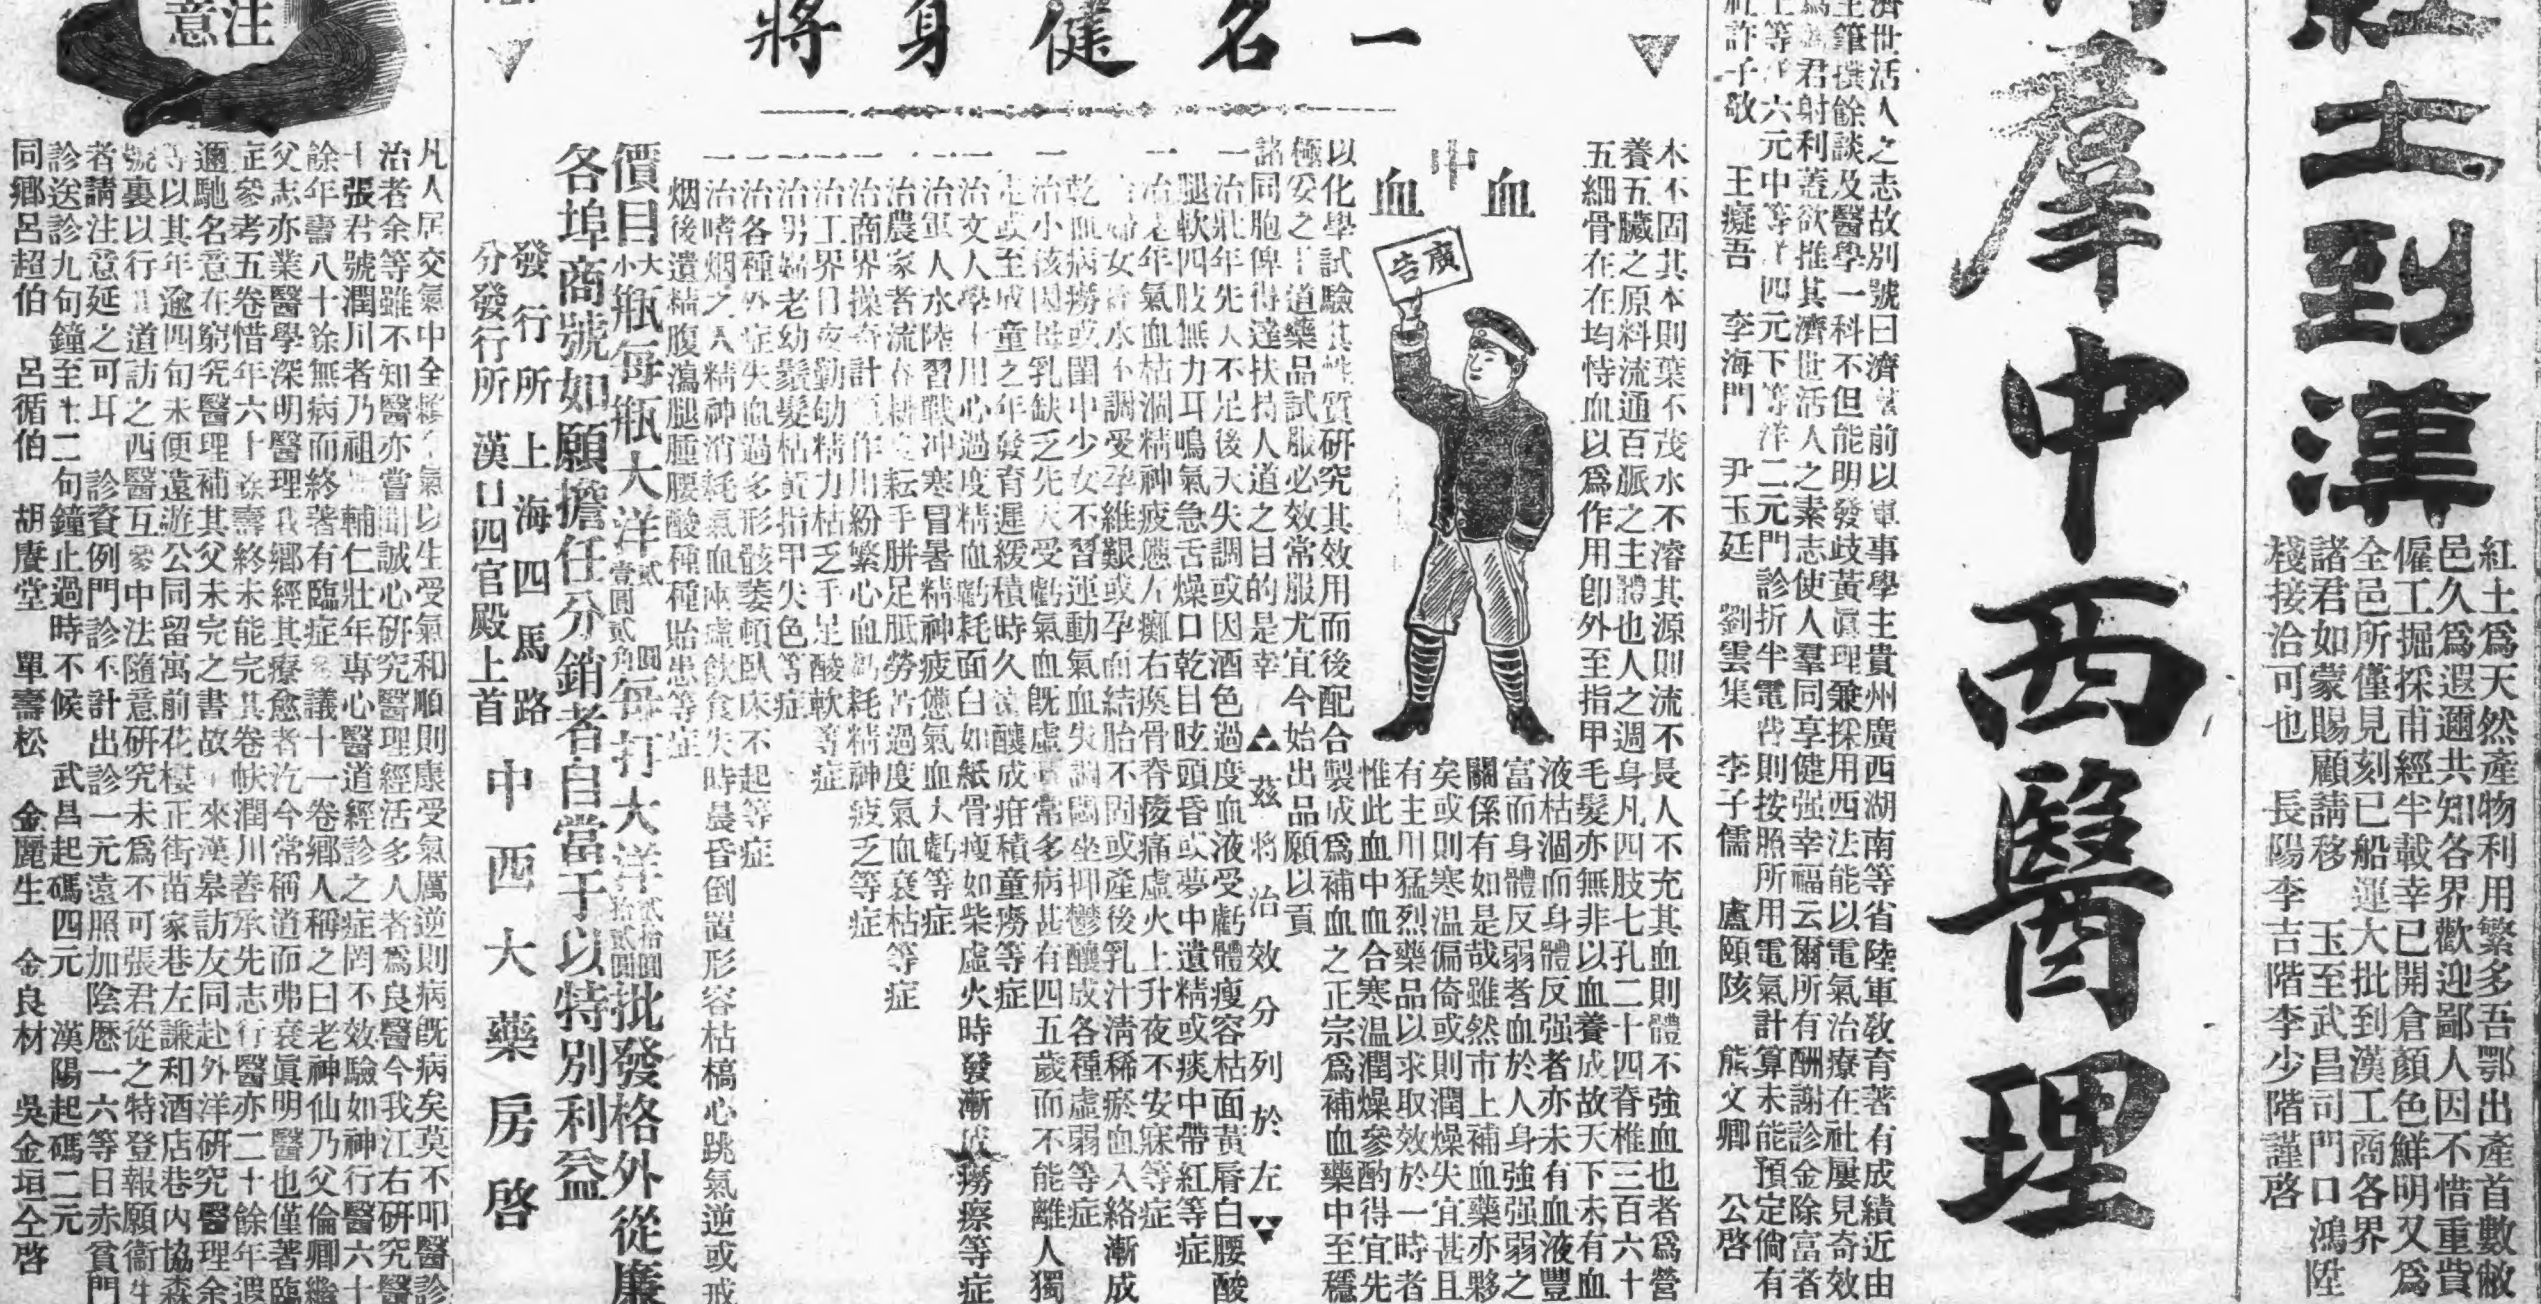 紅土到漢
紅土爲天然產物利用繁多吾鄂出產首數敝
邑久爲遐邇共知各界歡迎鄙人因不惜重費
僱工掘採甫經半載幸已開倉顏色鮮明又爲
全邑所僅見刻已船運大批到漢工商各界
諸君如蒙賜顧請移　玉至武昌司門口鴻陞
棧接洽可也　長陽李吉階李少階謹啓
羣中西醫理
濟世活人之志故別號曰濟羣前以軍事學主貴州廣西湖南等省陸軍敎育著有成績近由
主筆撰餘談及醫學一科不但能明發歧黃眞理兼採用西法能以電氣治療在社屢見奇效
爲君射利蓋欲推其濟世活人之素志使人羣同享健强幸福云爾所有酬謝診金除富者
上等洋六元中等洋四元下等洋二元門診折半電費則按照所用電氣計算未能預定倘有
社許子敬　王癡吾　李海門　尹玉廷　劉雲集　李子儒　盧頤陔　熊文卿　公啓
一名健身將
血中血
廣告
木不固其本則葉不茂水不濬其源則流不長人不充其血則體不強血也者爲營
養五臟之原料流通百脈之主體也人之週身凡四肢七孔二十四脊椎三百六十
五細骨在在均恃血以爲作用卽外至指甲毛髮亦無非以血養成故天下未有血
液枯涸而身體反强者亦未有血液豐
富而身體反弱者血於人身強强弱之
關係有如是哉雖然市上補血藥亦夥
矣或則寒温偏倚或則潤燥失宜甚且
有主用猛烈藥品以求取效於一時者
惟此血中血合寒温潤燥參酌得宜先
以化學試驗其性質研究其效用而後配合製成爲補血之正宗爲補血藥中至穩
極妥之王道藥品試服必效常服尤宜今始出品願以貢
諸同胞俾得達扶持人道之目的是幸　茲將治效分列於左
一治壯年先天不足後天失調或因酒色過度血液受虧體瘦容枯面黃唇白腰酸
腿軟四肢無力耳鳴氣急舌燥口乾目眩頭昏或夢中遺精或痰中帶紅等症
一治老年氣血枯涸精神疲憊左癱右瘓骨脊痠痛虛火上升夜不安寐等症
一治婦女經水不調受孕維艱或孕而結胎不固或產後乳汁清稀瘀血入絡漸成
乾血病癆或閨中少女不習運動氣血失調悶坐抑鬱釀成各種虛弱等症
一治小孩因母乳缺乏先天受虧氣血旣虛常多病甚有四五歲而不能離人獨
走或至成童之年發育遲緩積時久遠釀成疳積童癆等症
一治文人學士用心過度精血虧耗面白如紙骨瘦如柴虛火時發漸成癆瘵等症
一治軍人水陸習戰冲寒冒暑精神疲憊氣血大虧等症
一治農家者流春耕夏耘手胼足胝勞苦過度氣血衰枯等症
一治商界操奇計贏作用紛繁心血虧耗精神疲乏等症
一治工界日夜勤劬精力枯乏手足酸軟等症
一治男婦老幼鬚髮枯黃指甲失色等症
一治各種外症失血過多形骸萎頓臥床不起等症
一治嗜烟之人精神消耗氣血兩虛飲食失時晨昏倒置形容枯槁心跳氣逆或戒
烟後遺精腹瀉腿腫腰酸種種貽患等症
價目大小瓶每瓶大洋貳圓壹圓貳角每打大洋貳拾圓拾貳圓批發格外從廉
各埠商號如願擔任分銷者自當予以特別利益
發行所　上海四馬路
分發行所　漢口四官殿上首　中西大藥房啓
注意
凡人居交氣中全賴氣以生受氣和順則康受氣厲逆則病旣病矣莫不叩醫診
治者余等雖不知醫亦嘗聞誠心研究醫理經活多人者爲良醫今我江右研究醫
士張君號潤川者乃祖輔仁壯年專心醫道經診之症罔不效驗如神行醫六十
餘年壽八十餘無病而終著有臨症議十一卷鄉人稱之曰老神仙乃父倫卿繼
父志亦業醫學深明醫理我鄉經其療愈者汔今常稱道而弗衰眞明醫也僅著臨
症參考五卷惜年六十壽終未能完其卷帙潤川善承先志行醫亦二十餘年遐
邇馳名意在窮究醫理補其父未完之書故來漢皋訪友同赴外洋研究醫理余
等以其年逾四旬未便遠遊公同留寓前花樓正街苗家巷左謙和酒店巷內協森
號裏以行道訪之西醫互參中法隨意研究未爲不可張君從之特登報願衞生
者請注意延之可耳　診資例門診不計出診一元遠照加陰歷一六等日赤貧門
診送診九句鐘至十二句鐘止過時不候　武昌起碼四元　漢陽起碼二元
同鄉呂超伯　呂循伯　胡賡堂　單壽松　金麗生　金良材　吳金垣仝啓